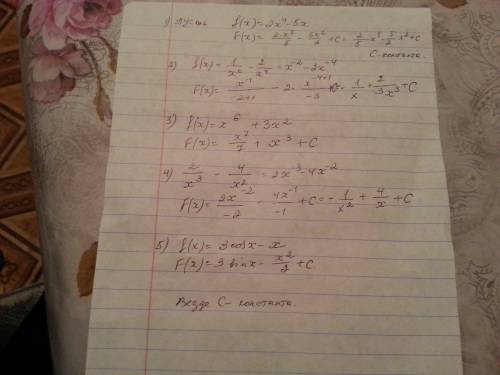 1) Пусть f(x)=2x⁴-5x
F(x)= 2·x⁵/5 - 5x²/2 + C = 2/5 x⁵ - 5/2 x² + C
C-константа.
2) f(x)= 1/x² - 2/x⁴ = x⁻² - 2x⁻⁴
F(x)= x⁻¹/-2+1 - 2· x⁻⁴⁺¹/-3 = - 1/x + 2/3x³ + C
3) f(x)= x⁶ + 3x²
F(x)= x⁷/7 + x³ + C
4) 2/x³ - 4/x² = 2x⁻³-4x⁻²
F(x)= 2x⁻²/-2 - 4x⁻¹/-1 + C = - 1/x² + 4/x + C
5) f(x)= 3cosx - x
F(x)= 3 sinx - x²/2 + C
Везде C- константа.